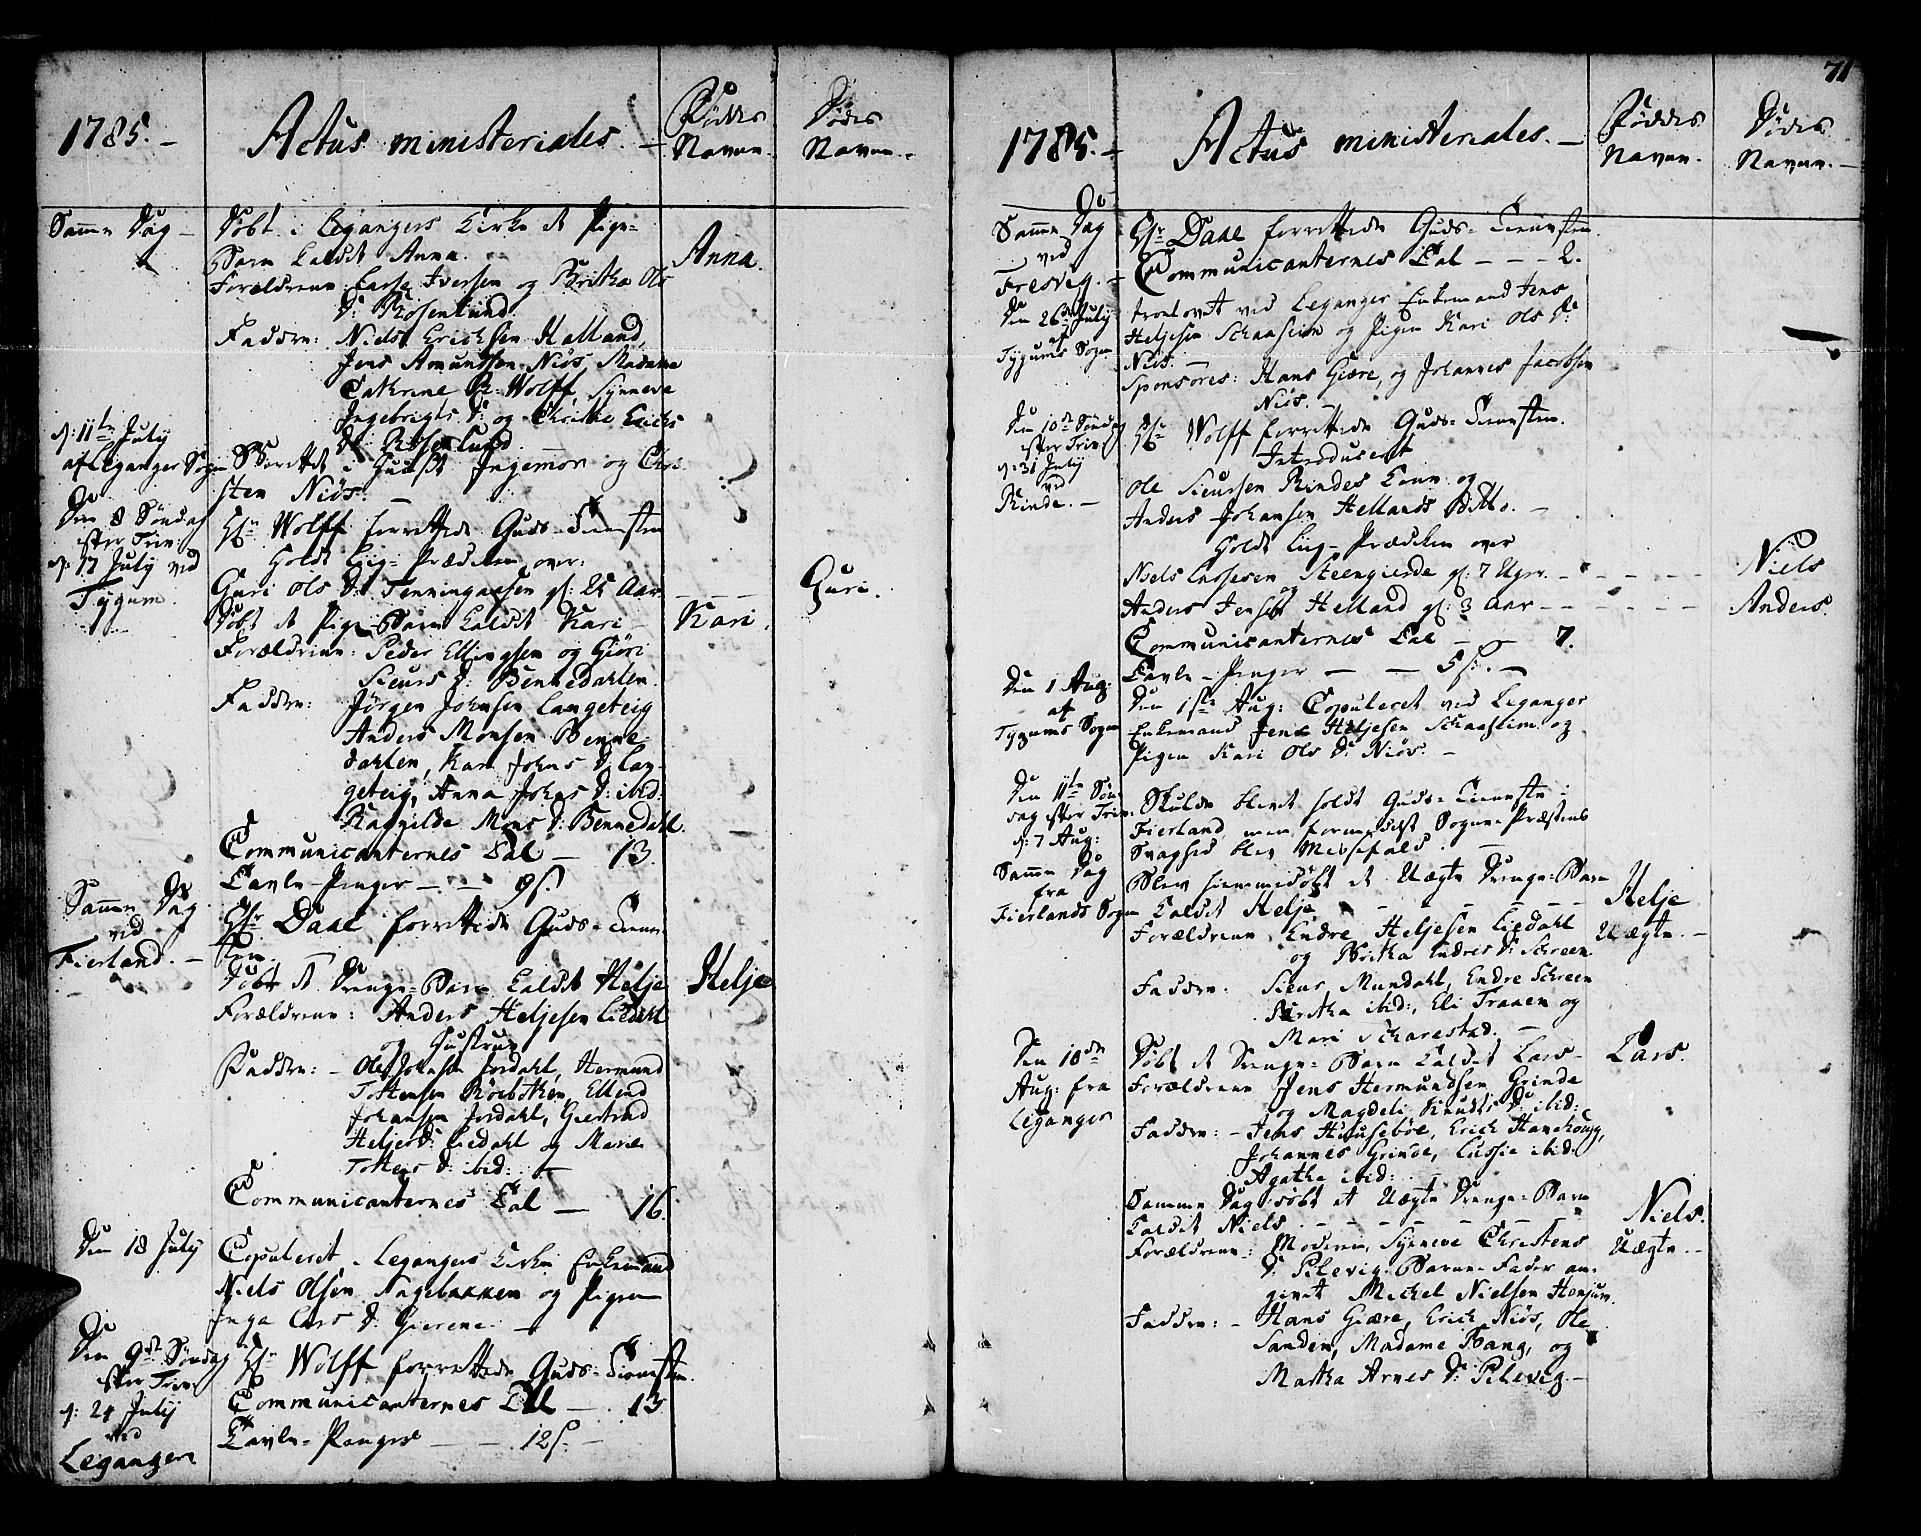 1785. -
Actus ministeriales. -
Fødtes
Navne.
Dødes
Navne. -
Samme Dag -
Døbt i Legangers Kirke et Pige-
Barn kaldet Anna.
Anna.
Forældrene Lasse Iversen og Britha Ols
D: Rosenlund.
Faddere: Niels Erichsen Halland,
Jens Amundsen Niøs, Madame
Cathrine Wolff, Synneve
Ingebrigts D: og Erichs
D: Rosenlund.
d: 11te July
af Leganger Sogn
i Huuset Ingemon og Chri-
sten Niøs. -
Den 8 Søndag
efter Trin:
d: 17 July ved
Tygum.
Hr Wolff forrettede Guds-Tienesten
Holdt Liig-Prædiken over:
Guri Ols D: Tenningaasen gl: 25 Aar
Guri.
Døbt et Pige-Barn kaldet Kari -
Kari.
Forældrene: Peder Ellingsen og Giøri
Sieurs D: Bennedahlen.
Faddere: Jørgen Johnsen Langeteig
Anders Monsen Benne-
dahlen, Kari Johns D: Lan-
geteig, Anna Johns D: ibid:
Ragnilde Mons D: Bennedahl.
Communicanternes Tal - 13.
Tavle-Penger - - 9 s.
Samme Dag
ved
Fierland. -
Hr Daae forrettede Guds-Tiene-
sten.
Døbt et Drenge-Barn kaldet Helje
Helje
Forældrene: Anders Heljesen Liedahl
og Hustrue
Faddere: - Ole Johnsen Jordahl, Hermund
Tottensen Bøebotten, Ellend
Johansen Jordahl, Giertrud
Heljes D: Liedahl og Mari
Tottens D: ibid: -
Communicanternes Tal - 16.
Den 18 July
Copuleret i Legangers Kirke Enkemand
Niels Olsen Nagebakken og Pigen
Inga Lars D: Gierene. -
Den 9de Søndag
efter Trin:
d: 24 July
ved
Leganger
Hr Wolff forrettede Guds-Tienesten.
Communicanternes Tal - 13
Tavle-Penger - - 12 s. -
71
1785. -
Actus ministeriales. -
Fødtes
Navne.
Dødes
Navne. -
Samme Dag
ved
Fresvig. -
Hr Daae forrettede Guds-Tienesten.
Communicanternes Tal - - - 2.
Den 26de July
af
Tygums Sogn
trolovet ved Leganger Enkemand Jens
Heljesen Schaasheim og Pigen Kari Ols D:
Niøs. -
Sponsores: Hans Giære, og Johannes Jacobsen
Niøs. -
Den 10de Søndag
efter Trin:
d: 31 July
ved
Rinde. -
Hr Wolff forrettede Guds-Tienesten.
Introduceret
Ole Sieursen Rindes Kone og
Anders Johansen Hellands Ditto. -
Holdt Liig-Prædiken over
Niels Lassesen Steengierde gl: 7 Uger. - - - - -
Niels
og
Anders Jensen Helland gl: 3 Aar - - - - -
Anders.
Communicanternes Tal - - 7.
Tavle-Penger - - 5 s. -
Den 1 Aug:
af
Tygums Sogn
Den 1ste Aug: Copuleret ved Leganger
Enkemand Jens Heljesen Schaasheim og
Pigen Kari Ols D: Niøs. -
Den 11te Søn-
dag efter Trin:
d: 7 Aug:
Skulde blevet holdt Guds-Tieneste i
Fierland men formedelst Sogne-Præstens
Svaghed blev Messefald. -
Samme Dag
fra
Fierlands Sogn
Blev hiemmedøbt et Uægte Drenge-Barn
kaldet Helje - - - - - -
Helje
Uægte. -
Forældrene Endre Heljesen Liedahl
og Britha Endres D: Schreen
Faddere. Sieur Mundahl, Endre Schreen
Britha ibid:, Eli Traaen og
Mari Scharestad. -
Den 10de
Aug: fra
Leganger
Døbt et Drenge-Barn kaldet Lars -
Lars.
Forældrene Jens Hermundsen Grinde
og Magdeli Knuds D: ibid:
Faddere: - Jens Huusebøe, Erich Hanehoug,
Johannes Grinde, Lussie ibid:
Agatha ibid:
Samme Dag døbt et Uægte Drenge-Barn
kaldet Niels - - - - -
Niels.
Uægte. -
Forældrene: Moderen, Synneve Christens
D: Pilevig. Barne-Fader an-
givet Michel Nielsen Henjum.
Faddere: - Hans Giære, Erich Niøs, Ole
Sanden, Madame Bang, og
Martha Arnes D: Pilevig. -